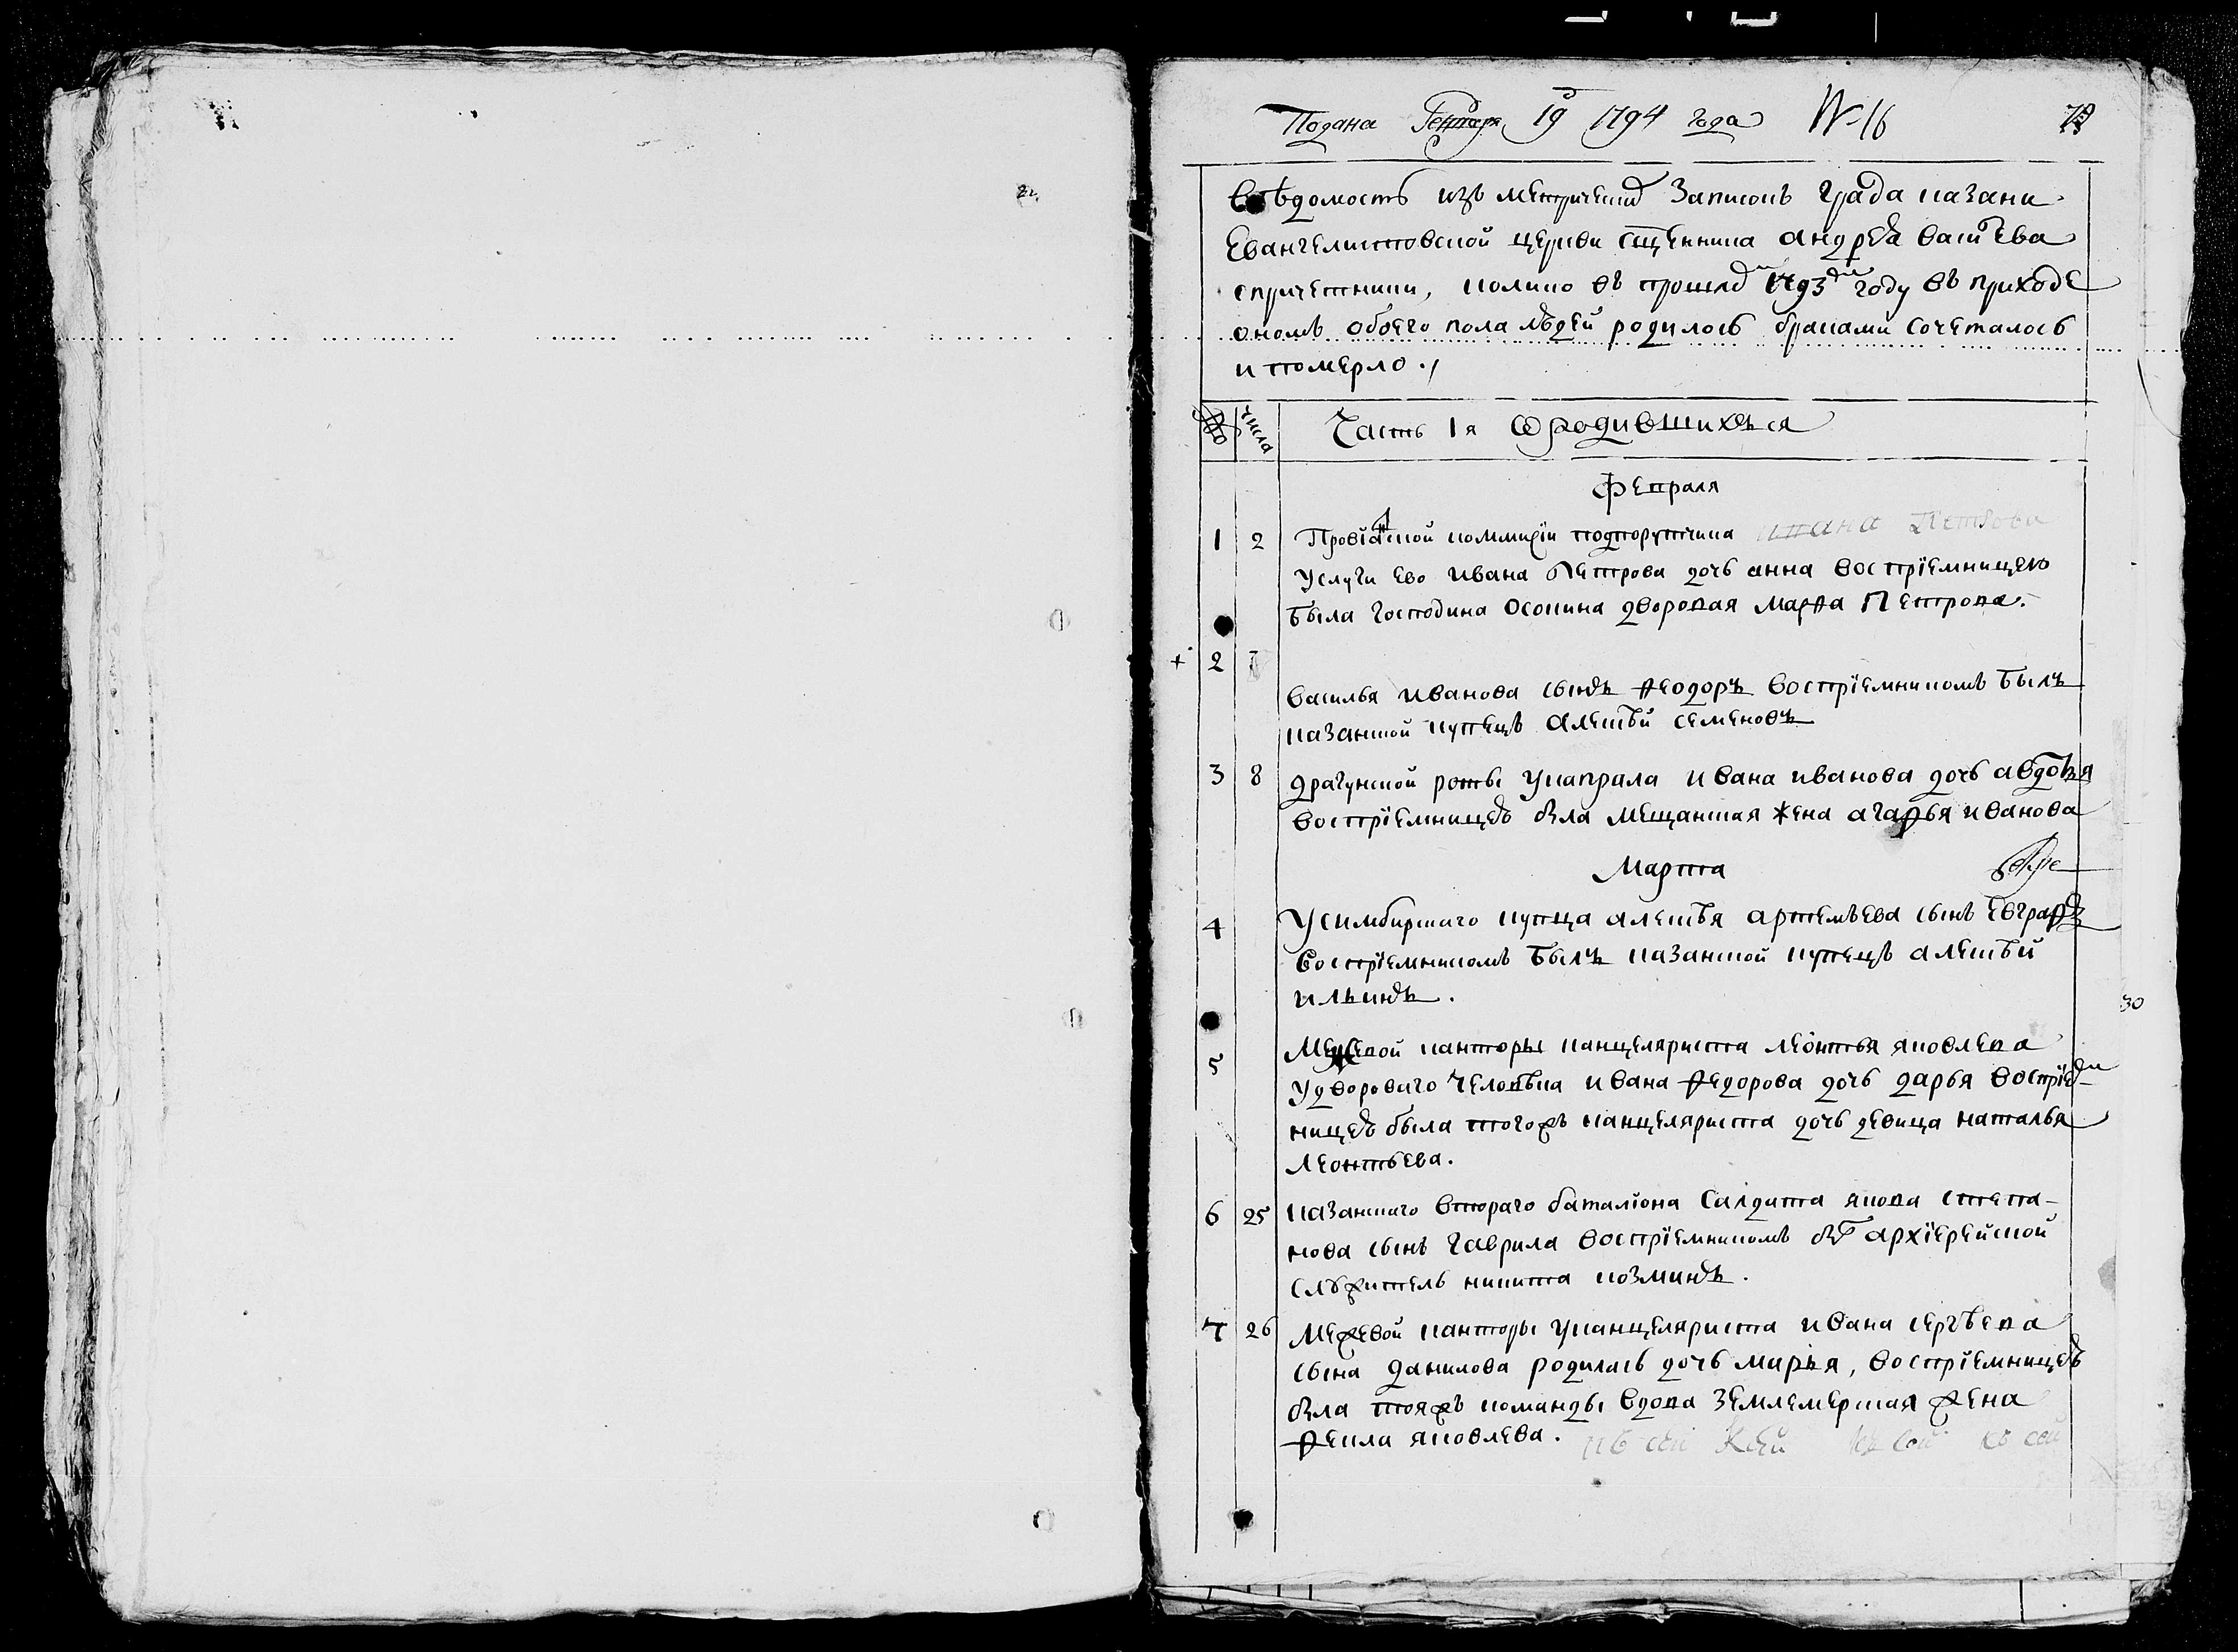 Подана Генваря 19го 1794 года №16
Вѣдомость изъ метрическихъ Записокъ града казани
Евангелистовской церкви сщенника андрея васильева
спричетники, колико въ прошлом 1793м году въ приходе
ономъ обоего пола людей родилось браками сочеталось
и померло.
числа
Часть 1я о родившихъся
февраля
1 2 Провіантской коммисіи подпорутчика
Услуги ево ивана Петрова дочь анна воспріемницею
была господина осокина дворовая марфа Петрова.
+ 2
василья иванова сынъ феодоръ воспріемникомъ былъ
казанской купецъ алексѣй семеновъ
3 8 драгунской роты укапрала ивана иванова дочь авдотья
воспріемницею была мещанская жена агафья иванова
Марта
4 Усимбирскаго купца алексѣя артемьева сынъ евграфъ
воспріемникомъ былъ казанской купецъ алексѣй
ильинъ.
5 Межевой канторы канцеляриста леонтья яковлева
удворового человѣка ивана федорова дочь дарья воспріем-
ницею была тогожъ канцеляриста дочь девица наталья
леонтьева.
6 25 казанского втораго баталіона салдата якова степа-
нова сынъ гаврила воспріемникомъ былъ архіерейской
служитель никита козминъ.
7 26 межевой канторы уканцеляриста ивана сергѣева
сына данилова родилась дочь марья, воспріемницею
была тояжъ команды вдова землемерская жена
фекла яковлева.
30